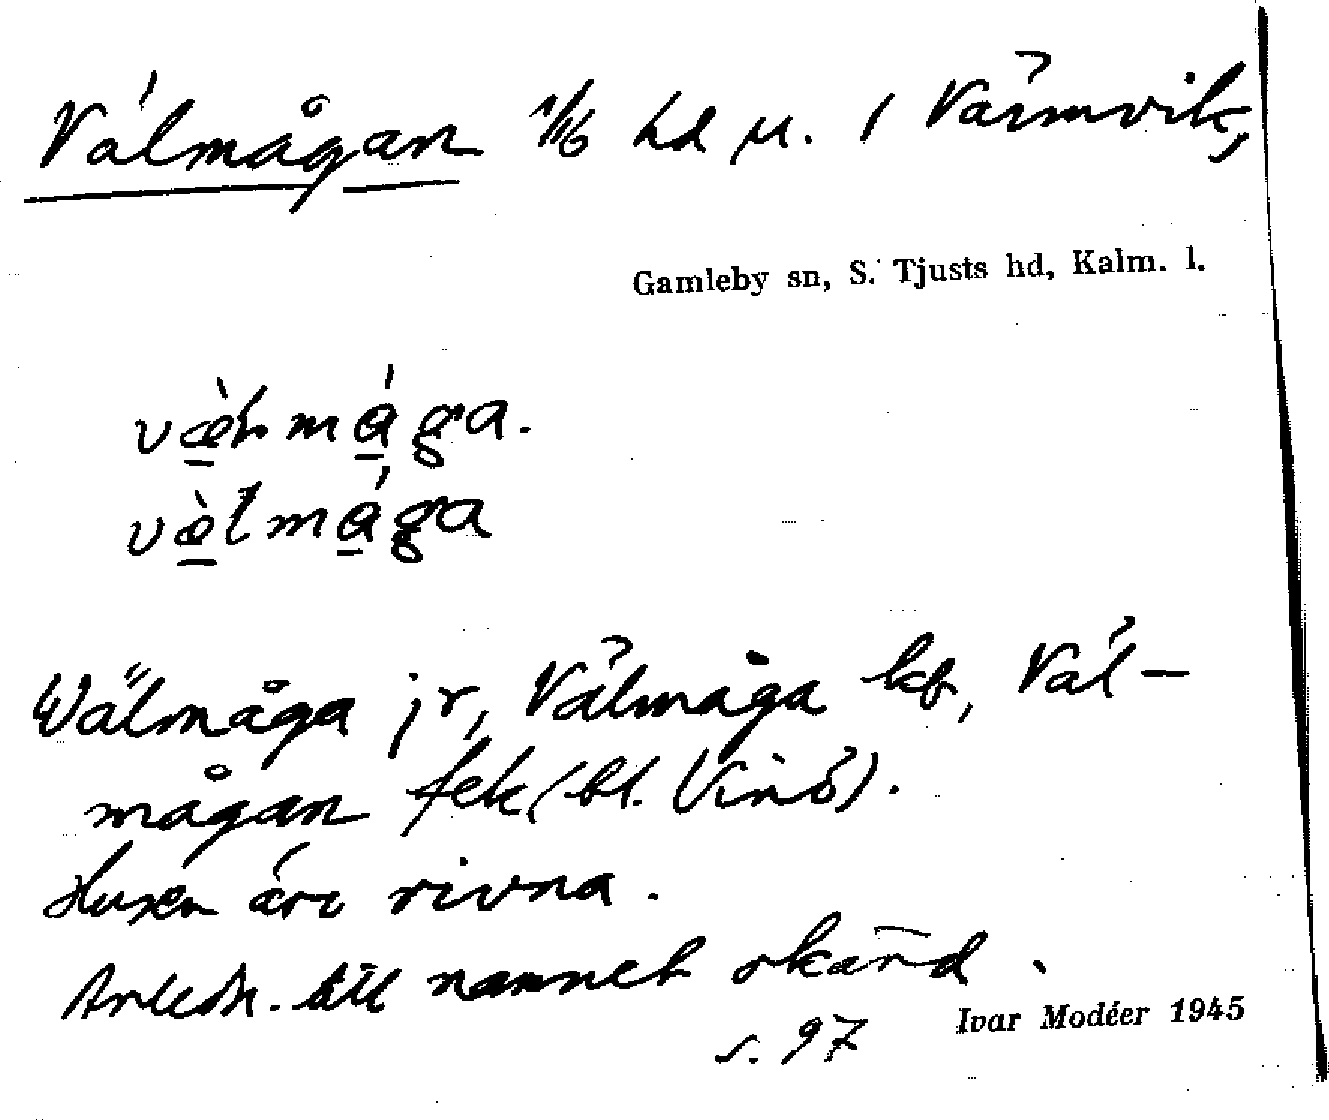 Välmågan 1/16 hd u. / Värmvik,
Gamleby sn, S. Tjusts hd, Kalm. l.
vælmåga.
vælmåga
Wälmåga jr, Välmåga kb, Väl-
mågan fek (bl. Vinö).
Husen äro rivna.
till namnet okänd.
s. 97
Ivar Modéer 1945